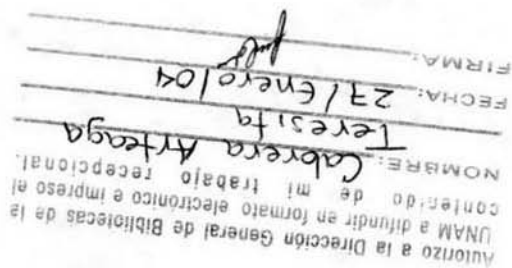 Autorizo a la Dirección General de Bibliotecas de la
UNAM a difundir en formato electrónico e impreso el
contenido de mi trabajo recepcional.
NOMBRE: Cabrera Arteaga
Teresita
FECHA: 27/Enero/04
FIRMA: